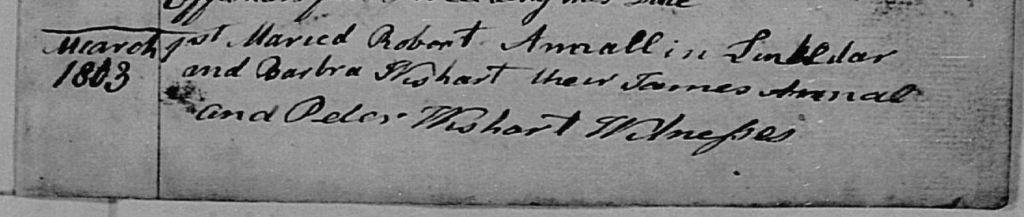 March 1st Maried Robort Annall in Linkldar
1803 and Barbra Wishart their James Annal
and Peter Wishart Witnesses